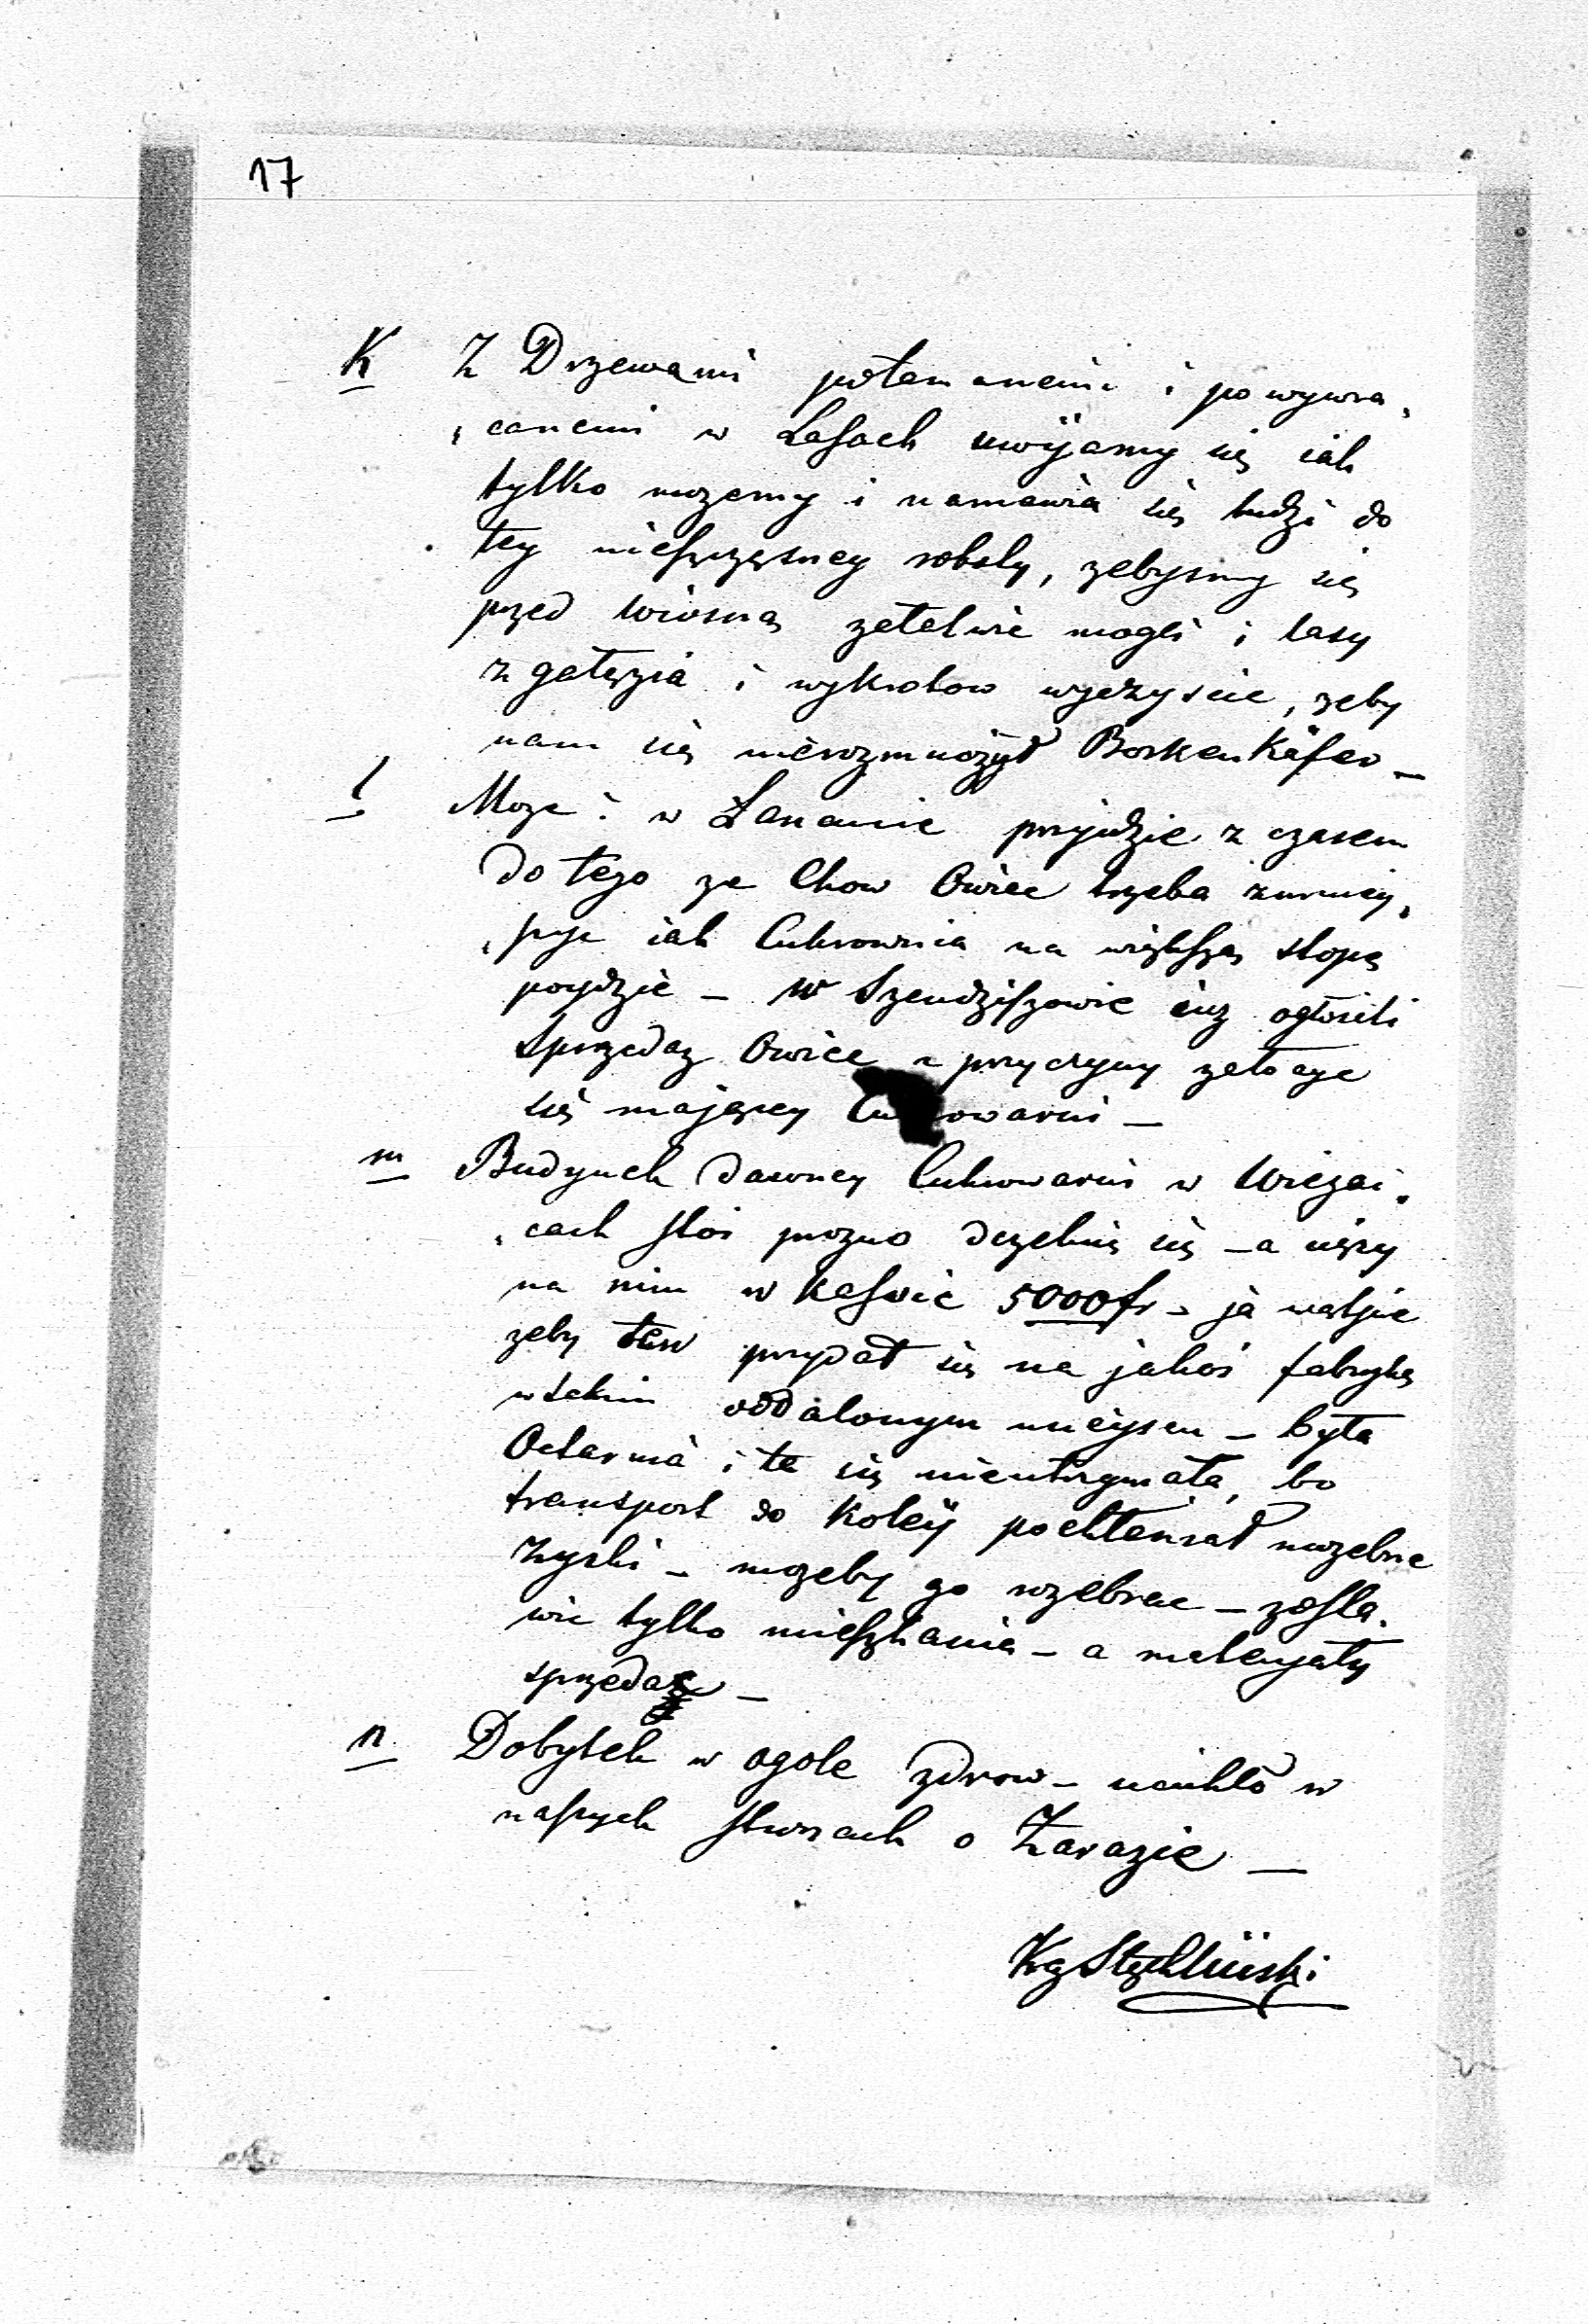 17
K Z Drzewami połamanemi i powywra,
,canemi w Lasach uwijamy się iak
tylko mozemy i namawia się ludzi do
tey nieszczęsney roboty, zebysmy się
przed wiosną załatwic mogli i lasy
z gałęzia i wykrotow wyczyscic, zeby
nam się nierozmnożył Borkenkäfer —
l Moze i w Łancucie przyidzie z czasem
do tego ze Chow Owiec trzeba zmniey,
,szyc iak Cukrownia na większą stopę
poydzie — W Szendziszowie iuz ogłosili
Sprzedaz Owiec z przyczyny założyc
się maiącey Cukrowarni —
m Budynek dawney Cukrowarni w
,cach stoi prozno dezeluie się — a cięzy
na nim w Kassie 5000 fr — ja wątpie
zeby ten przydał się na jakoś fabrykę
w takim oddalonym mieyscu — była
Octarnia i ta się nieutrzymała, bo
transport do Koleÿ pochłaniał mozebne
Zyski — mozeby go rozebrac — zosta,
wic tylko mieszkania — a materyały
sprzedac —
n Dobytek w ogole zdrow — ucichło w
naszych stronach o Zarazie —